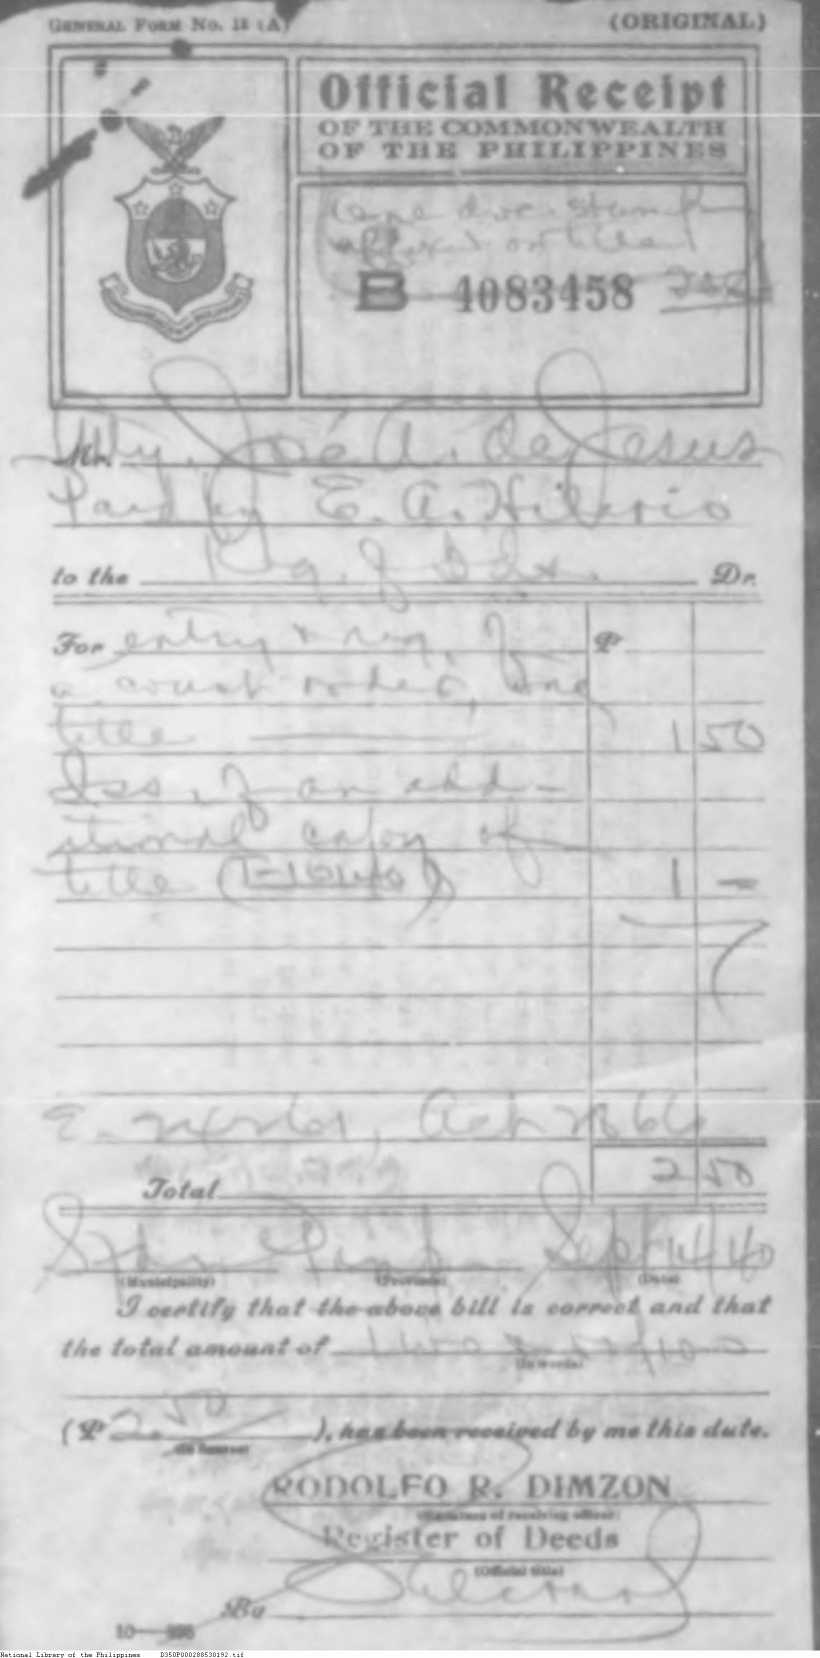 GENERAL FORM NO. 13 (A)
(ORIGINAL)
Official Receipt
OF THE COMMONWEALTH
OF THE PHILIPPINES
stamp
affixed on title
B 4083458
Mr. Atty. José A. de Jesus
Paid by E. A. Hilario
to the Reg. of Dds. Dr.
For entry & reg. of ₱
a court order, one
title 1 50
Iss. of an add-
itional copy of
title (T-10140) 1 —
Total 2 50
Sept 14/40
(Municipality) (Province) (Date)
I certify that the above bill is correct and that
the total amount of two & 50/100
(In words)
(₱ 2.50 ), has been received by me this date.
(In figures)
RODOLFO R. DIMZON
(Signature of receiving officer)
Register of Deeds
(Official title)
By
National Library of the Philippines D350P000288530192.tif